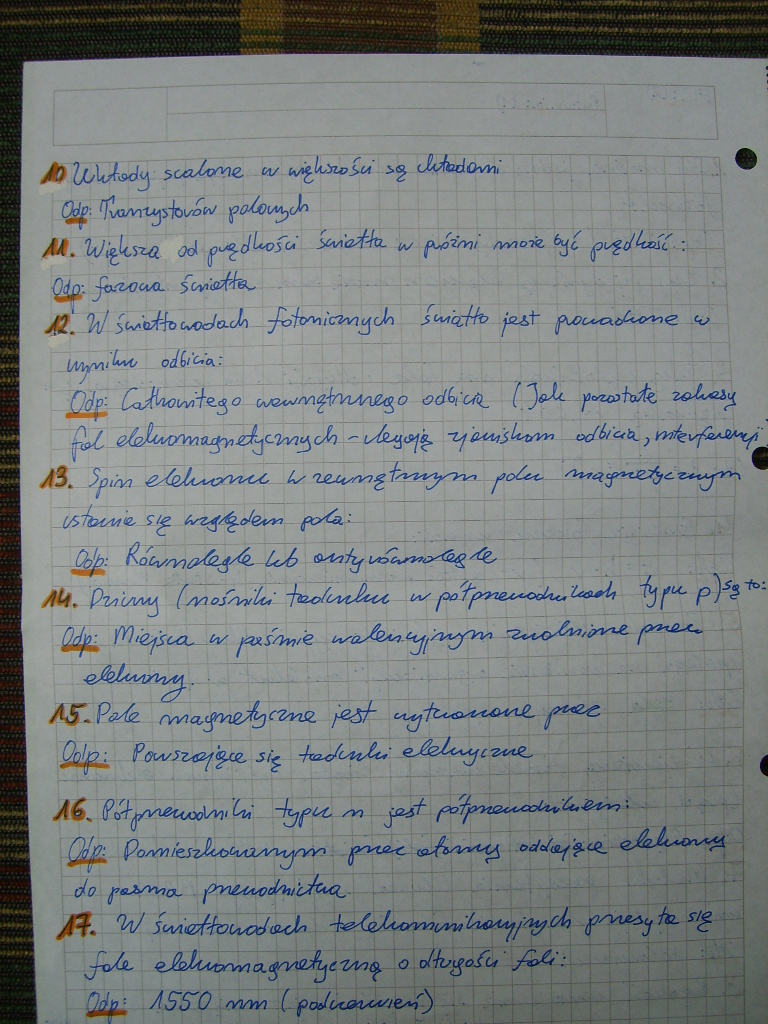 10 Układy scalone w większości są układami
Odp: Tranzystorów polowych
11. Większa od prędkości światła w próżni może być prędkość:
Odp: fazowa światła
12. W światłowodach fotonicznych światło jest prowadzone w
wyniku odbicia:
Odp: Całkowitego wewnętrznego odbicia (Jak pozostałe zakresy
fal elektromagnetycznych - ulegają zjawiskom odbicia, interferencji
13. Spin elektronu w zewnętrznym polu magnetycznym
ustawia się względem pola:
Odp: Równolegle lub antyrównolegle
14. Dziury (nośniki ładunku w półprzewodnikach typu p) są to:
Odp: Miejsca w paśmie walencyjnym zwolnione przez
elektrony.
15. Pole magnetyczne jest wytworzone przez
Odp: Poruszające się ładunki elektryczne
16. Półprzewodniki typu n jest półprzewodnikiem:
Odp: Domieszkowanym przez atomy oddające elektrony
do pasma przewodnictwa
17. W światłowodach telekomunikacyjnych przesyła się
fale elektromagnetyczną o długości fali:
Odp: 1550 nm (podczerwień)